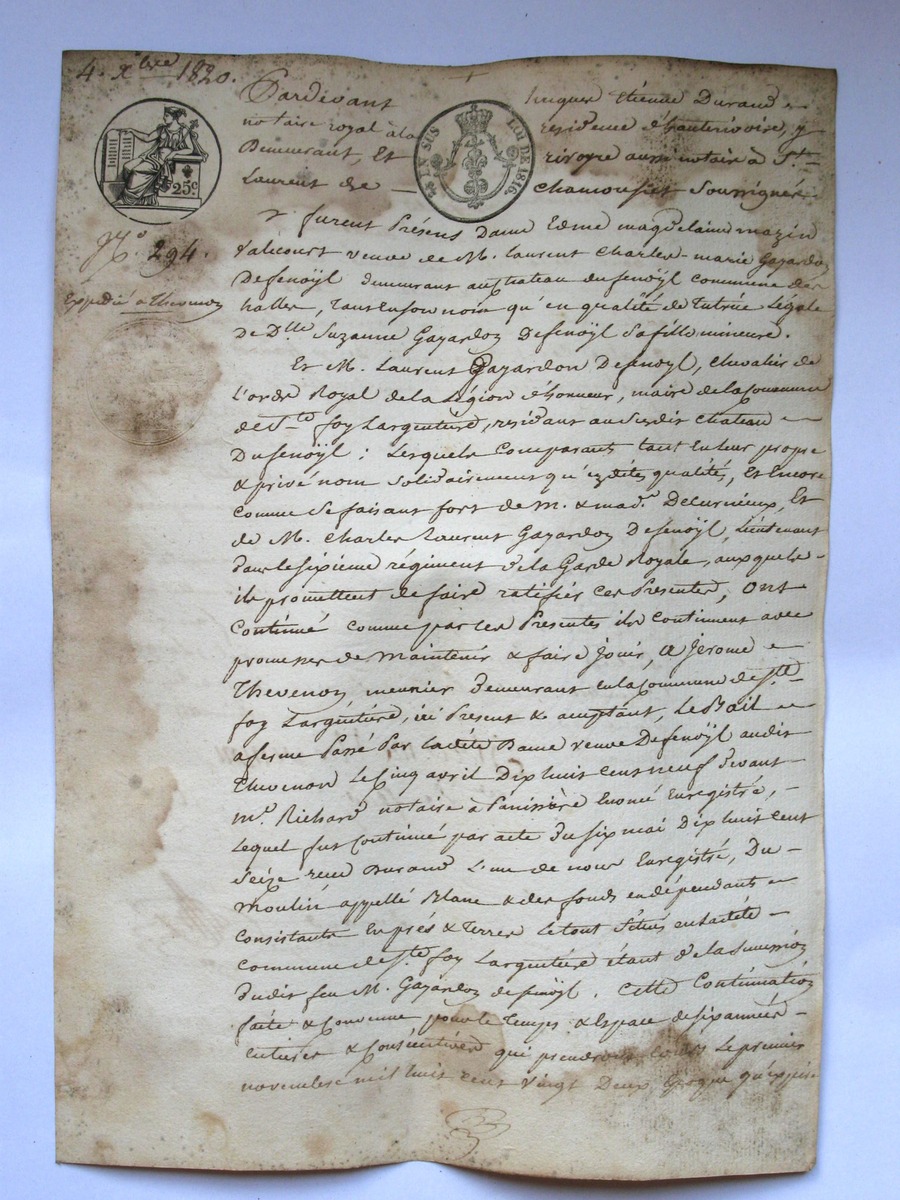 4. xbre 1820.
Pardevant hugues Etienne Durand
notaire royal à la residence d'hauterivoire, y
Demeurant, Et rivoyre aussi notaire à St.
Laurent de Chamousset Soussignés.
25c
EN SUS LOI DE 1816.
No. 294.
Expedié a Thevenon
furent Présens Dame Edme magdelaine mazin
Valicourt veuve de M. Laurent Charles-marie Gayardon
Defenöyl demeurant au Chateau dufenöyl commune des
halles, tant en son nom qu'en qualité de Tutrice Légale
de Dlle Suzanne Gayardon Defenöyl sa fille mineure.
Et M. Laurent Gayardon Defenöyl, Chevalier de
L'ordre Royal de la Légion d'honneur, maire de la Commune
de Ste foy Largentière, résidant au Susdit Chateau
Dufenöyl; Lesquels Comparants tant En leur propre
& privé nom Solidairement qu'esdites qualités, Et Encore
comme Se faisant fort de m. & made Et
de M. Charles Laurent Gayardon Defenöyl, Lieutenant
dans le Sixieme régiment de la Garde Royale, auxquels
ils promettent de faire ratifier ces Présentes, Ont
Continué comme par ces Présentes ils Continuent avec
promesses de maintenir & faire Jouir, a Jerome
Thevenon meunier demeurant en la Commune de Ste
foy Largentière, ici Présent & acceptant, Le Bail
a ferme Passé Par ladite Dame veuve Defenöyl audit
Thevenon Le Cinq avril Dix huit Cent neuf devant
me. Richard notaire à Panissière Enregistré,
Lequel fut Continué par acte du six mai Dix huit Cent
Seize recu Durand L'un de nous Enregistré, Du
Moulin appellé Blanc & des fonds en dépendants
Consistants En prés & Terres Le tout Situés en ladite
commune de Ste foy Largentière étant de la Succession
dudit feu M. Gayardon defenöyl. Cette Continuation
faite & Convenue pour le Temps & Espace de six années
Entieres & Consécutives qui prendront cours Le premier
novembre mil huit Cent Vingt Deux, Epoque